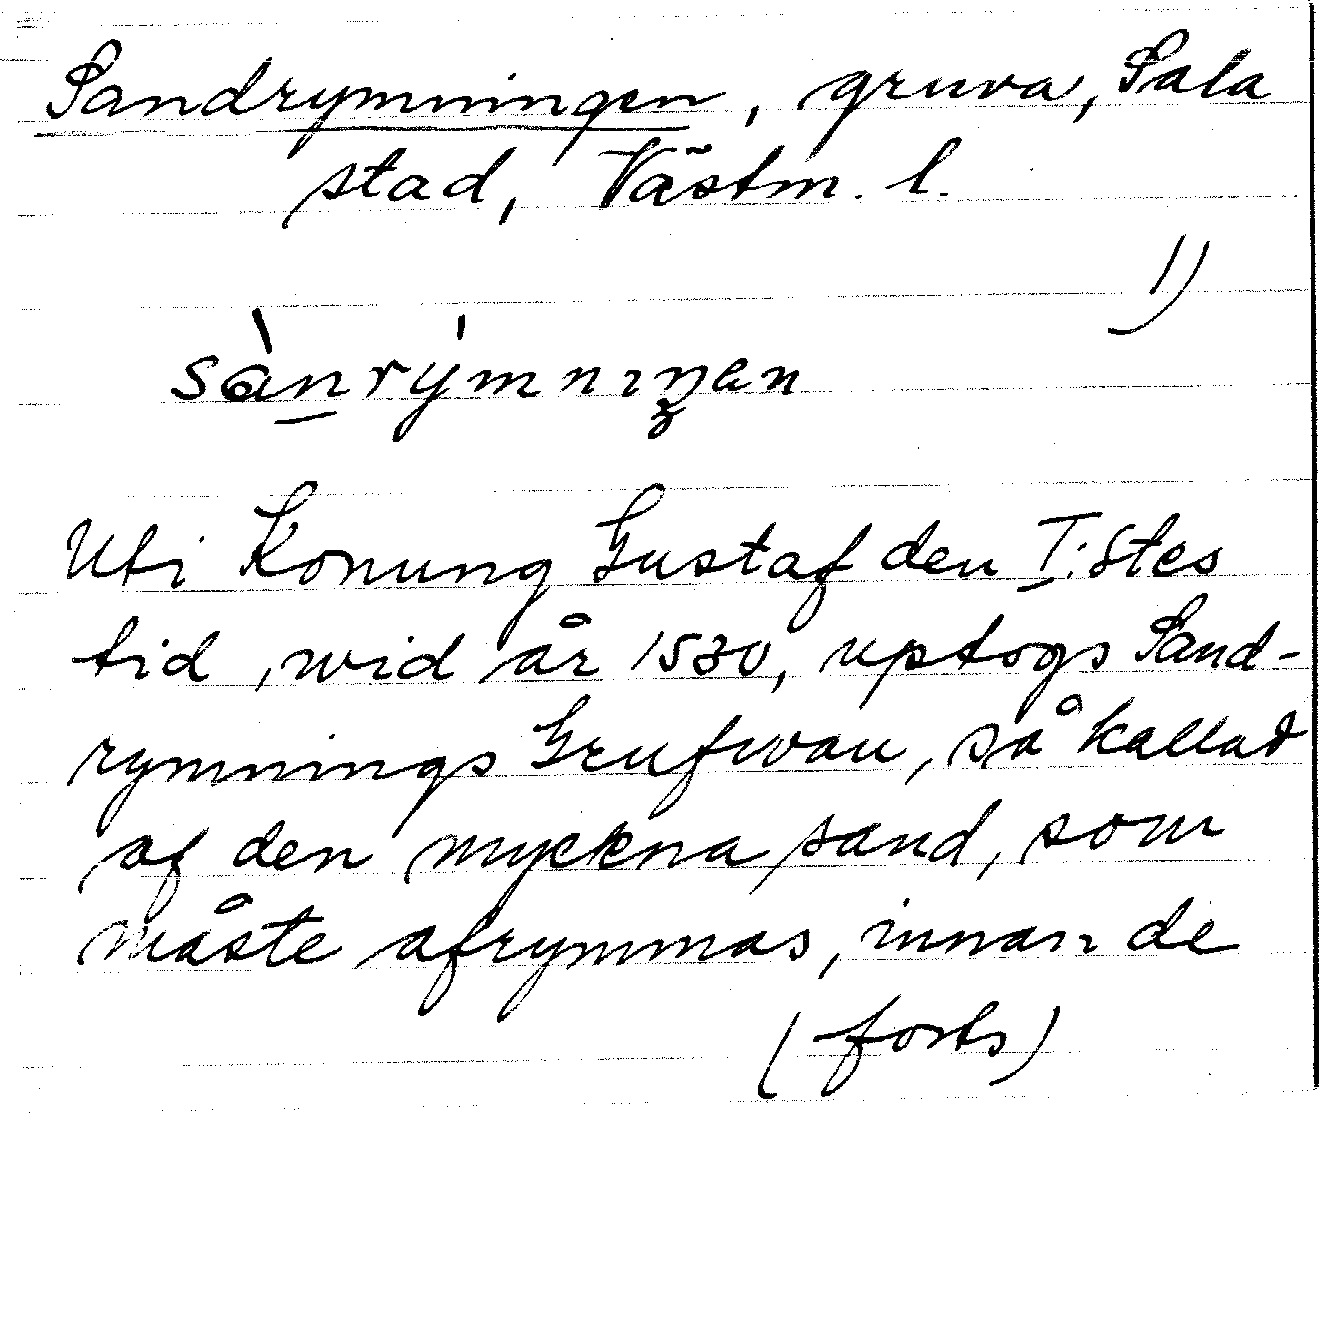 Sandrymningen, gruva, Sala
stad, Västm. l.
1)
sàn̲rýmnıŋen
Uti Konung Gustaf den I:stes
tid, wid år 1530, uptogs Sand-
rymnings Grufwan, så kallad
af den myckna sand, som
måste afrymmas, innan de
(forts)